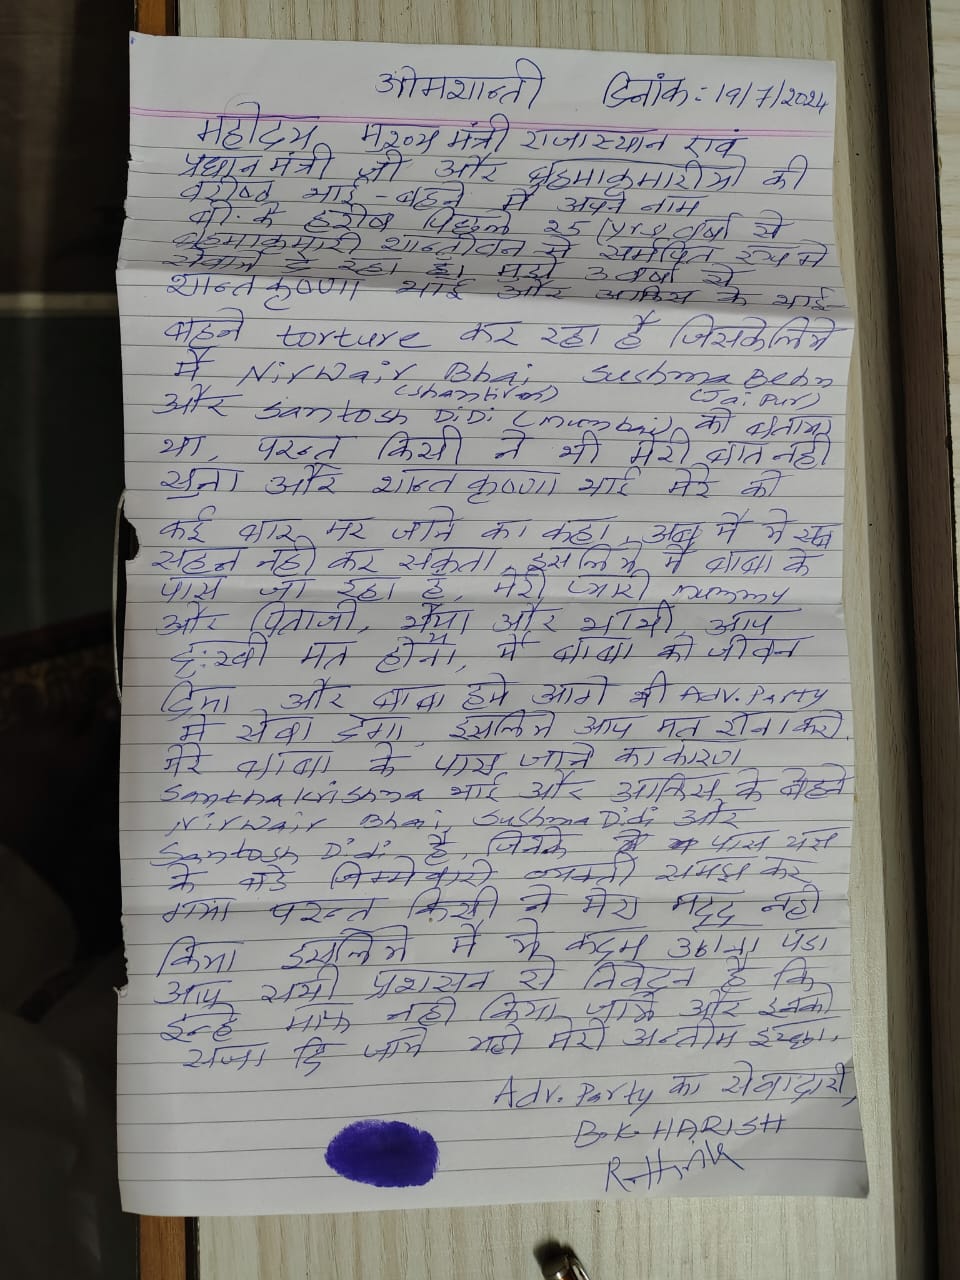 ओमशान्ती दिनांक: 19/7/2024
महोदय मुख्य मंत्री राजास्थान एवं
प्रधान मंत्री जी और ब्रह्माकुमारीज की
वरीष्ठ भाई-बहने मैं अपने नाम
बी.के हरीष पिछले 25 yrs वर्षो से
ब्रह्माकुमारी शान्तीवन में समर्पित रूप में
सेवाये दे रहा है। मुझे 3 वर्षो से
शान्तकृष्णा भाई और आफिस के भाई
बहने torture कर रहा है जिसकेलिये
मैं Nirwair Bhai Sushma Behn
(Shantivan) (Jaipur)
और Santosh DiDi (mumbai) को बताया
था, परन्त किसी ने भी मेरी बात नही
सुना और शान्तकृष्णा भाई मेरे को
कई बार मर जाने का कहा, अब मैं ये सब
सहन नही कर सकता इसलिये मैं बाबा के
पास जा रहा है, मेरी प्यारी mummy
और पिताजी, भैया और भाभी, आप
दु:खी मत होना, मैं बाबा को जीवन
दिया और बाबा हमे आगे भी Adv. Party
मे सेवा देगा, इसलिये आप मत रोना करो.
मेरे बाबा के पास जाने का कारण
Santhakrishna भाई और आफिस के बेहने
Nirwair Bhai, Sushma Didi और
Santosh Didi है, जिनके पास यज्ञ
के बडे जिम्मेवारी व्यक्ती समझ कर
गया परन्त किसी ने मेरा मदद नही
किया इसलिये मैं ये कदम उठाना पडा
आप सभी प्रशासन से निवेदन है कि
इन्हे माफ नही किया जाये और इनको
सजा दि जाये यही मेरी अन्तीम इच्छा.
Adv. Party का सेवादारी,
B.K HARISH